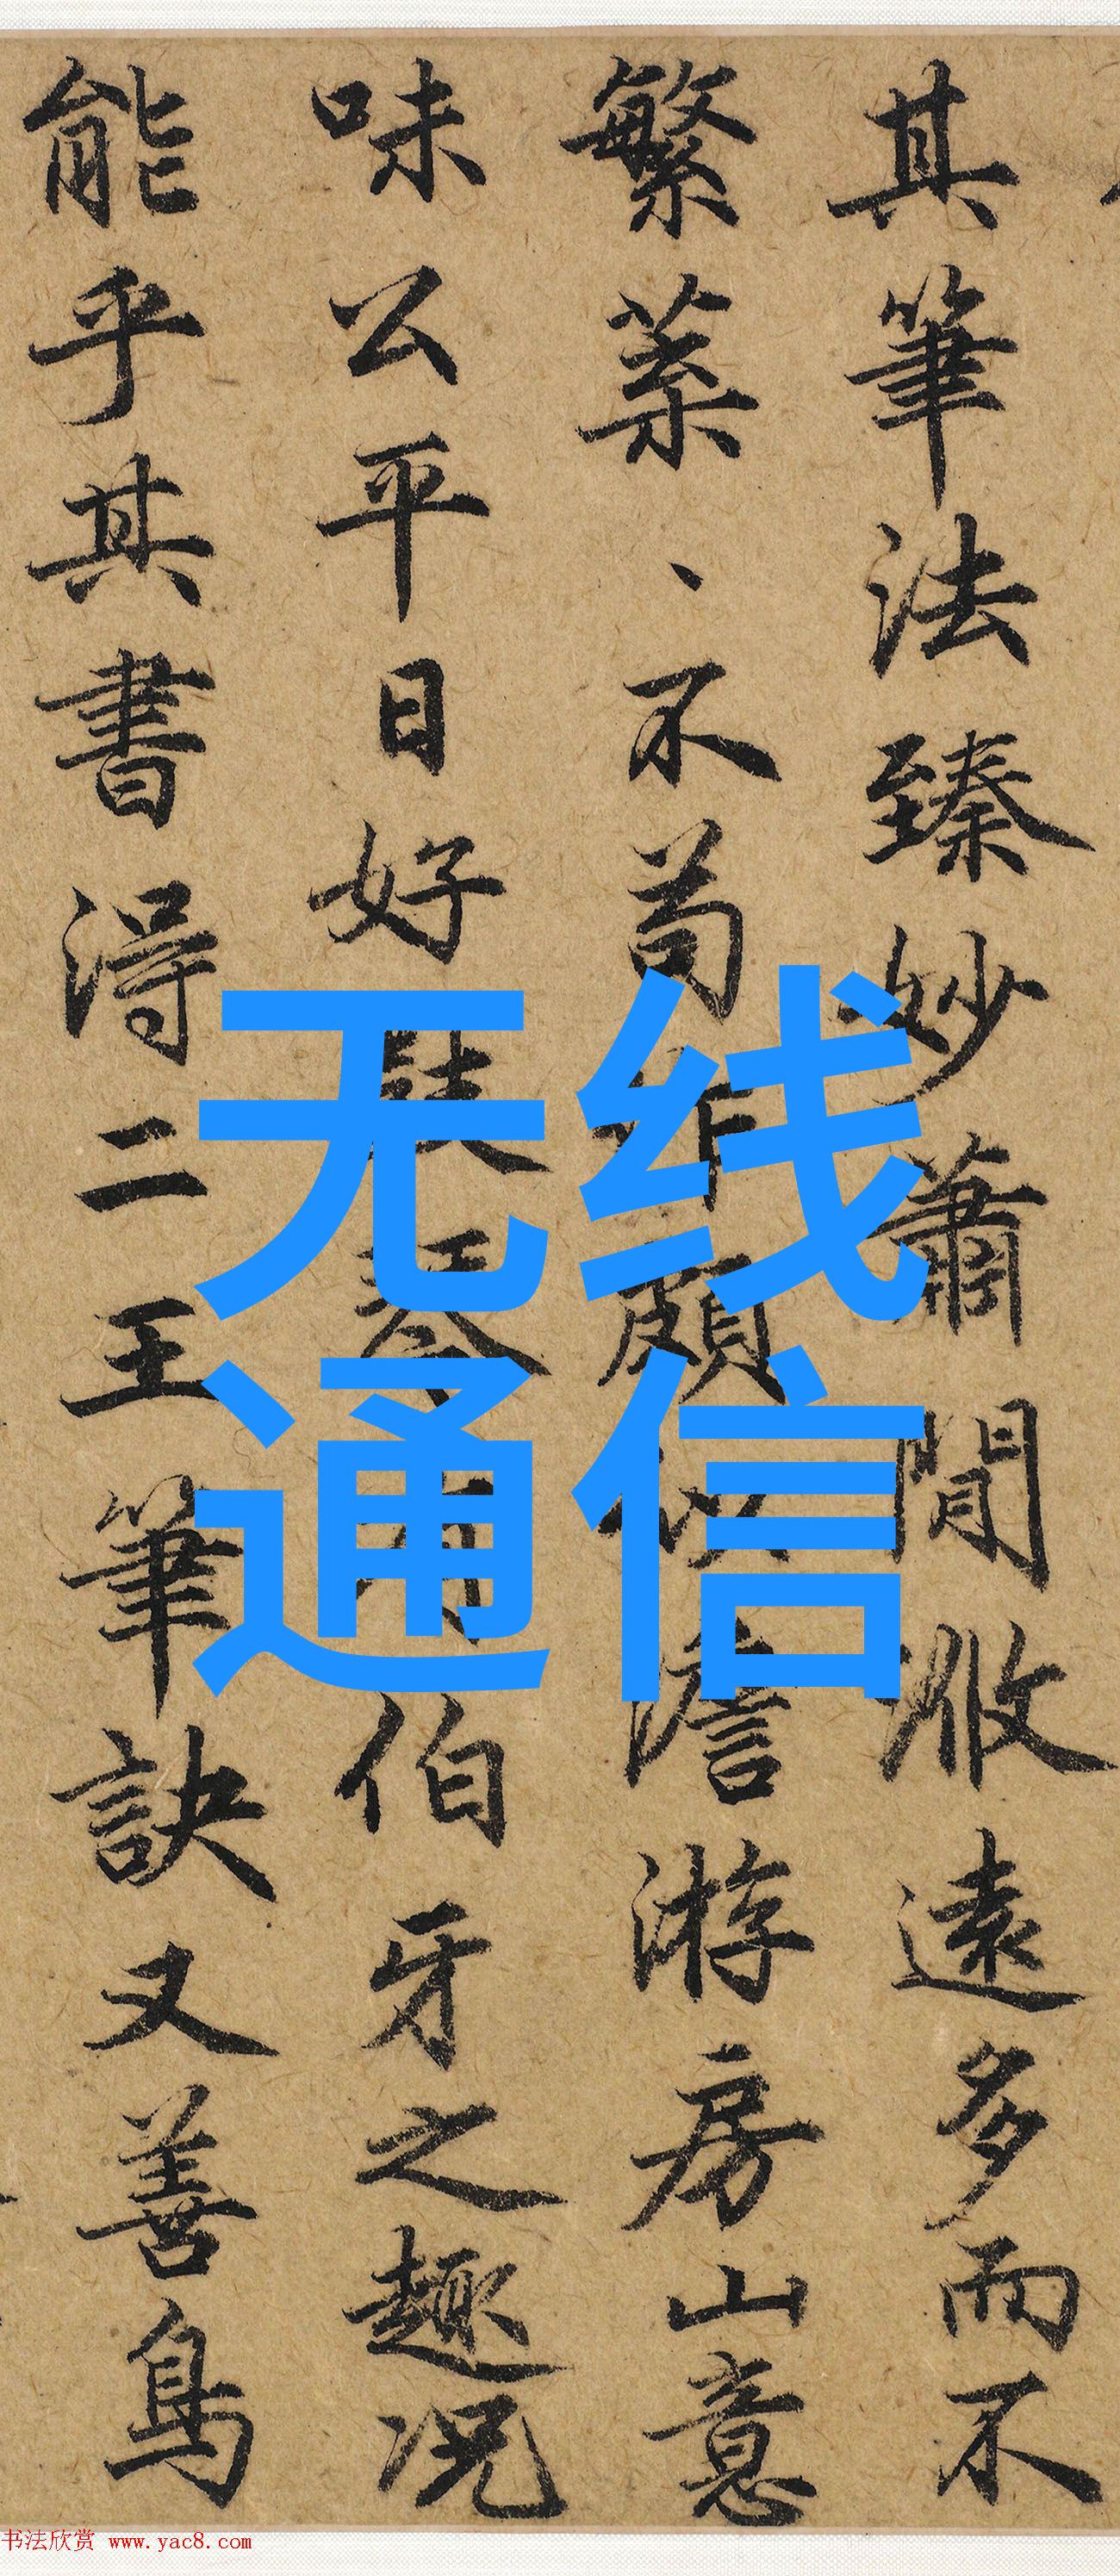 其筆法臻妙蕭閒㳺遠多而不
繁萧丶不苟作頗似澹游房山意
味公平日好琴伯牙之趣況
能乎其書得二王筆訣又善鳥
无线
通信
书法欣赏 www.yac8.com